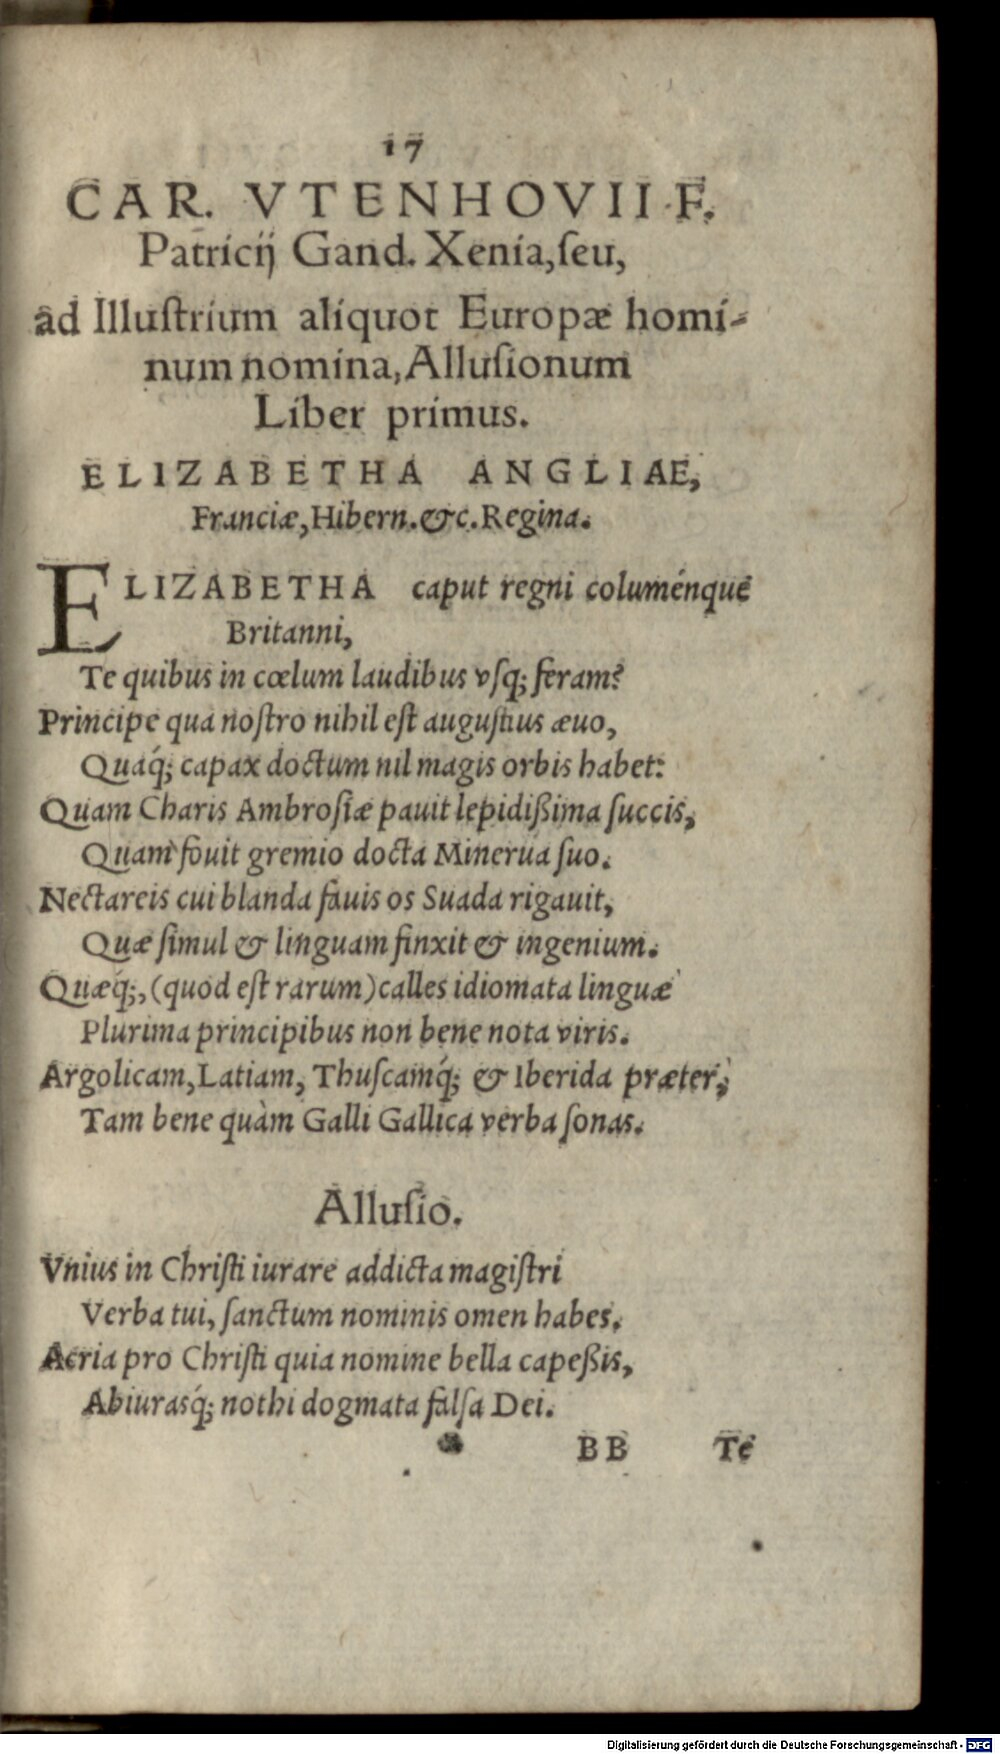 17
CAR. VTENHOVII F.
Patricij Gand. Xenia, ſeu,
ad Illuſtrium aliquot Europæ homi-
num nomina, Alluſionum
Liber primus.
ELIZABETHA ANGLIAE,
Franciæ, Hibern. &c. Regina.
ELIZABETHA caput regni columénque
Britanni,
Te quibus in cœlum laudibus vſq; feram?
Principe qua noſtro nihil eſt auguſtius æuo,
Quáq; capax doctum nil magis orbis habet:
Quam Charis Ambroſiæ pauit lepidißima ſuccis,
Quam fouit gremio docta Minerua ſuo.
Nectareis cui blanda fauis os Suada rigauit,
Quæ ſimul & linguam finxit & ingenium.
Quæq́;, (quod eſt rarum) calles idiomata linguæ
Plurima principibus non bene nota viris.
Argolicam, Latiam, Thuſcamq́; & Iberida præter,
Tam bene quàm Galli Gallica verba ſonas.
Alluſio.
Vnius in Chriſti iurare addicta magiſtri
Verba tui, ſanctum nominis omen habes.
Acria pro Chriſti quia nomine bella capeßis,
Abiurasq́; nothi dogmata falſa Dei.
BB Te
Digitalisierung gefördert durch die Deutsche Forschungsgemeinschaft - DFG